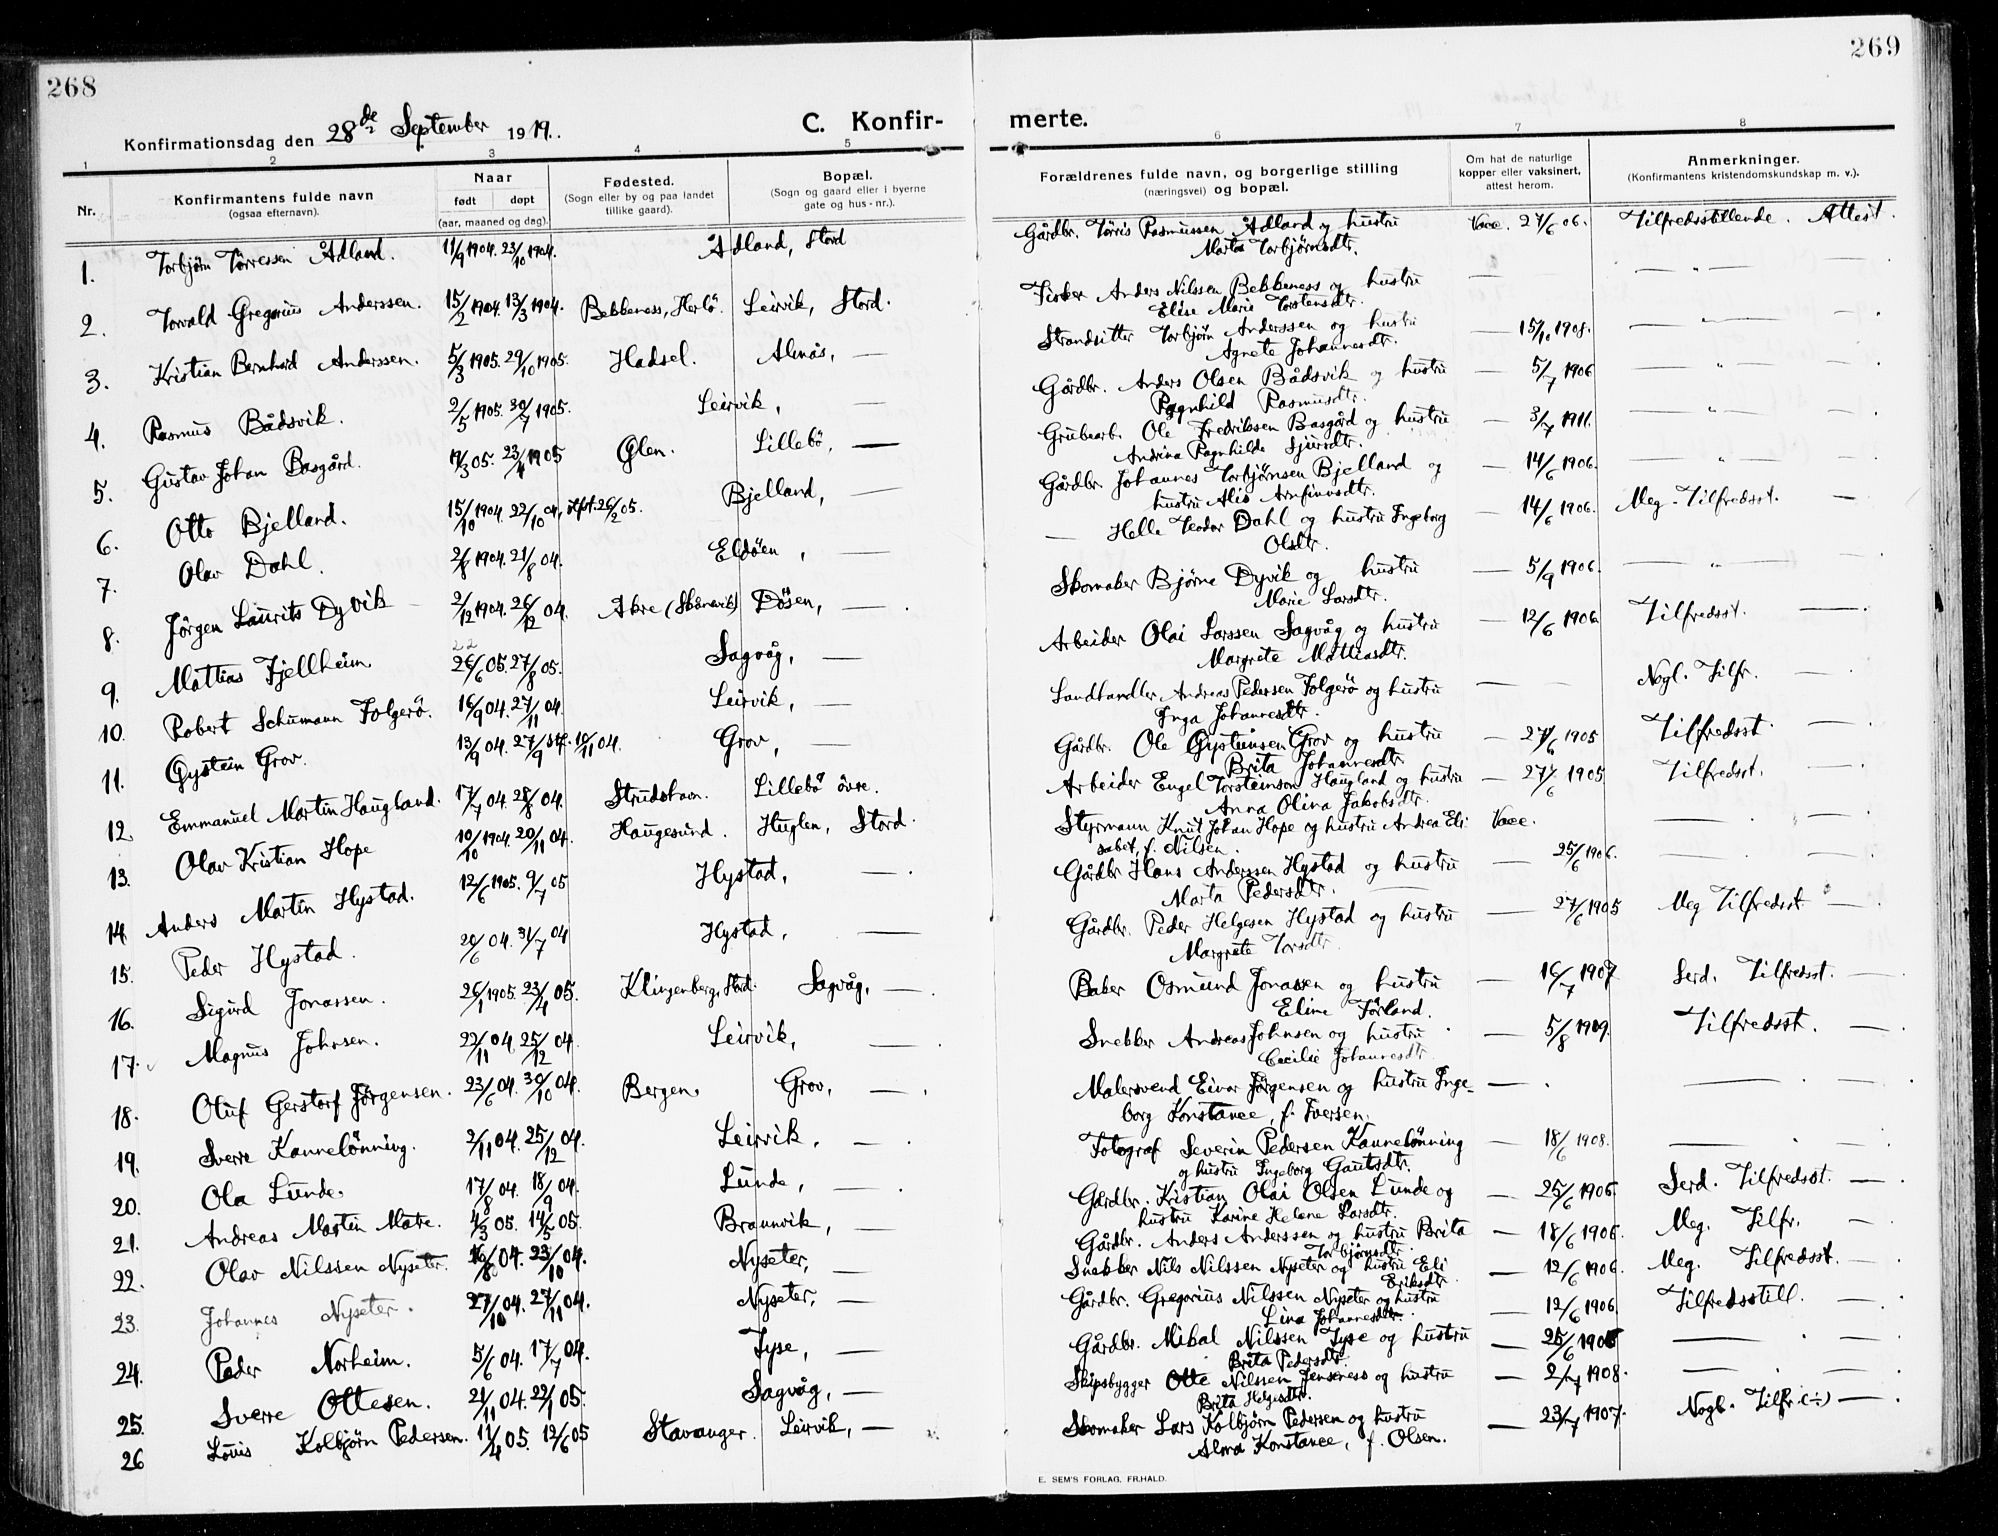 268
269
Konfirmationsdag den 28de September 1919.
C. Konfir-
merte.
1 2 3 4 5 6 7 8
Nr.
Konfirmantens fulde navn
(ogsaa efternavn).
Naar
født døpt
(aar, maaned og dag).
Fødested.
(Sogn eller by og paa landet
tillike gaard).
Bopæl.
(Sogn og gaard eller i byerne
gate og hus-nr.).
Forældrenes fulde navn, og borgerlige stilling
(næringsvei) og bopæl.
Om hat de naturlige
kopper eller vaksinert,
attest herom.
Anmerkninger.
(Konfirmantens kristendomskundskap m. v.).
1. Torbjørn Tørressen Ådland. 11/9 1904. 23/10 1904. Ådland, Stord Gårdbr. Tørris Rasmussen Ådland og hustru Vacc. 27/6 06. Tilfredsstillende. Attest.
Marta Torbjørnsdtr.
2. Torvald Gregorius Anderssen. 15/2 1904. 13/3 1904. Bekkeness, Herlö. Leirvik, Stord. Fisker Anders Nilssen Bekkeness og hustru — — " — —
Elise Marie Torstensdtr.
3. Kristian Bernhard Anderssen. 5/3 1905. 29/10 1905. Hadsel. Almås, — Strandsitter Torbjørn Anderssen og hustru — 15/10 1908. — " — —
Agnete Johannesdtr.
4. Rasmus Bådsvik. 2/5 1905. 30/7 1905. Leirvik, — Gårdbr. Anders Olsen Bådsvik og hustru — 5/7 1906 — " — —
Ragnhild Rasmusdtr.
5. Gustav Johan Basgård. 19/3 05. 23/4 1905 Glen. Lillebö, — Grubearb. Ole Fredrikssen Basgård og hustru — 3/7 1911. — " — —
Andrina Ragnhilde Sjursdtr.
6. Otto Bjelland. 15/10 1904. 22/10 04, stfst. 26/2 05. Bjelland, — Gårdbr. Johannes Torbjørnsen Bjelland og — 14/6 1906. — " — —
hustru Alis Arnfinnsdtr.
7. Olav Dahl. 2/8 1904. 21/8 04. Eldöen, — — Helle Teodor Dahl og hustru Ingeborg — 14/6 1906. Meg. Tilfredsst. —
Olsdtr.
8. Jörgen Laurits Dyvik 2/12 1904. 26/12 04. Åkre (Skånevik) Dösen, — Skomaker Bjørne Dyvik og hustru — 5/9 1906. — " — —
Marie Larsdtr.
9. Mattias Fjellheim 26/6 05. 27/8 05. Sagvåg, — Arbeider Olai Larssen Sagvåg og hustru — 12/6 1906. Tilfredsst. —
Margrete Mattiasdtr.
10. Robert Schumann Folgerö. 16/9 04. 27/11 04. Leirvik, — Landhandler Andreas Pedersen Folgerö og hustru — — Nogl. Tilfr. —
Inga Johannesdtr.
11. Øystein Grov. 13/9 04. 27/9 stf. 10/11 04. Grov, — Gårdbr. Ole Øysteinsen Grov og hustru — 27/6 1905 Tilfredsst. —
Brita Johannesdtr
12. Emmanuel Martin Haugland. 17/7 04. 28/8 04. Strudshavn. Lillebö övre. Arbeider Engel Torsteinson Haugland og hustru — 27/6 1905 Tilfredsst. —
Anna Olina Jakobsdtr.
13. Olav Kristian Hope 10/10 1904. 20/11 04. Haugesund. Huglen, Stord. Styrmann Knut Johan Hope og hustru Andrea Eli- Vacc. — —
sabet, f. Nilsen.
14. Anders Martin Hystad. 12/6 1905. 9/7 05 Hystad, — Gårdbr Hans Anderssen Hystad og hustru — 25/6 1906. — —
Marta Pedersdtr. —
15. Peder Hystad. 20/6 04. 31/7 04 Hystad, — Gårdbr. Peder Helgesen Hystad og hustru — 27/6 1905 Meg Tilfredsst. —
Margrete Torsdtr.
16. Sigurd Jonassen. 26/1 1905. 23/4 05. Klingenberg, Stord. Sagvåg, — Baker Osmund Jonassen og hustru — 16/7 1907 Serd. Tilfredsst. —
Eline Förland.
17. Magnus Johnsen. 22/11 04. 25/12 04. Leirvik, — Snekker Andreas Johnsen og hustru — 5/8 1909. Tilfredsst. —
Cecilie Johannesdtr.
18. Oluf Gerstorf Jörgensen. 23/6 04. 30/10 04. Bergen. Grov, — Malersvend Eivar Jörgensen og hustru Inge- — — —
borg Konstance, f. Iversen.
19. Sverre Kannelönning. 2/11 04. 25/12 04. Leirvik. — Fotograf Severin Pedersen Kannelönning — 18/6 1908. — —
og hustru Ingeborg Gautsdtr.
20. Ola Lunde. 17/8 04. 18/9 04. Lunde, — Gårdbr. Kristian Olai Olsen Lunde og — 25/6 1906. Serd. Tilfredsst. —
hustru Karine Helene Larsdtr.
21. Andreas Martin Matre. 4/3 05. 14/5 05. Braunvik, — Gårdbr. Anders Anderssen og hustru Brita — 18/6 1906. Meg. Tilfr. —
Torbjørnsdtr.
22. Olav Nilssen Nyseter. 16/8 04. 23/10 04. Nyseter, — Snekker Nils Nilssen Nyseter og hustru Eli — 12/6 1906. Meg. Tilfredsst. —
Eriksdtr.
23. Johannes Nyseter. 27/10 04. 27/11 04. Nyseter, — Gårdbr. Gregorius Nilssen Nyseter og hustru — 12/6 1906. Tilfredsstill. —
Lina Johannesdtr.
24. Peder Norheim. 5/6 04. 17/7 04. Tyse, — Gårdbr. Mikal Nilssen Tyse og hustru — 25/6 1906 — —
Brita Pedersdtr.
25. Sverre Ottesen. 21/11 04. 22/1 05. Sagvåg, — Skipsbygger Otte Nilssen Jenseness og hustru — 2/7 1908. — —
Brita Helgesdtr.
26 Louis Kolbjörn Pedersen. 11/4 05. 12/6 05 Stavanger. Leirvik, — Skomaker Lars Kolbjörn Pedersen og hustru — 23/7 1907. Nogl. Tilfr. (÷) —
Alma Konstance, f. Olsen.
E. SEM'S FORLAG, FR.HALD.